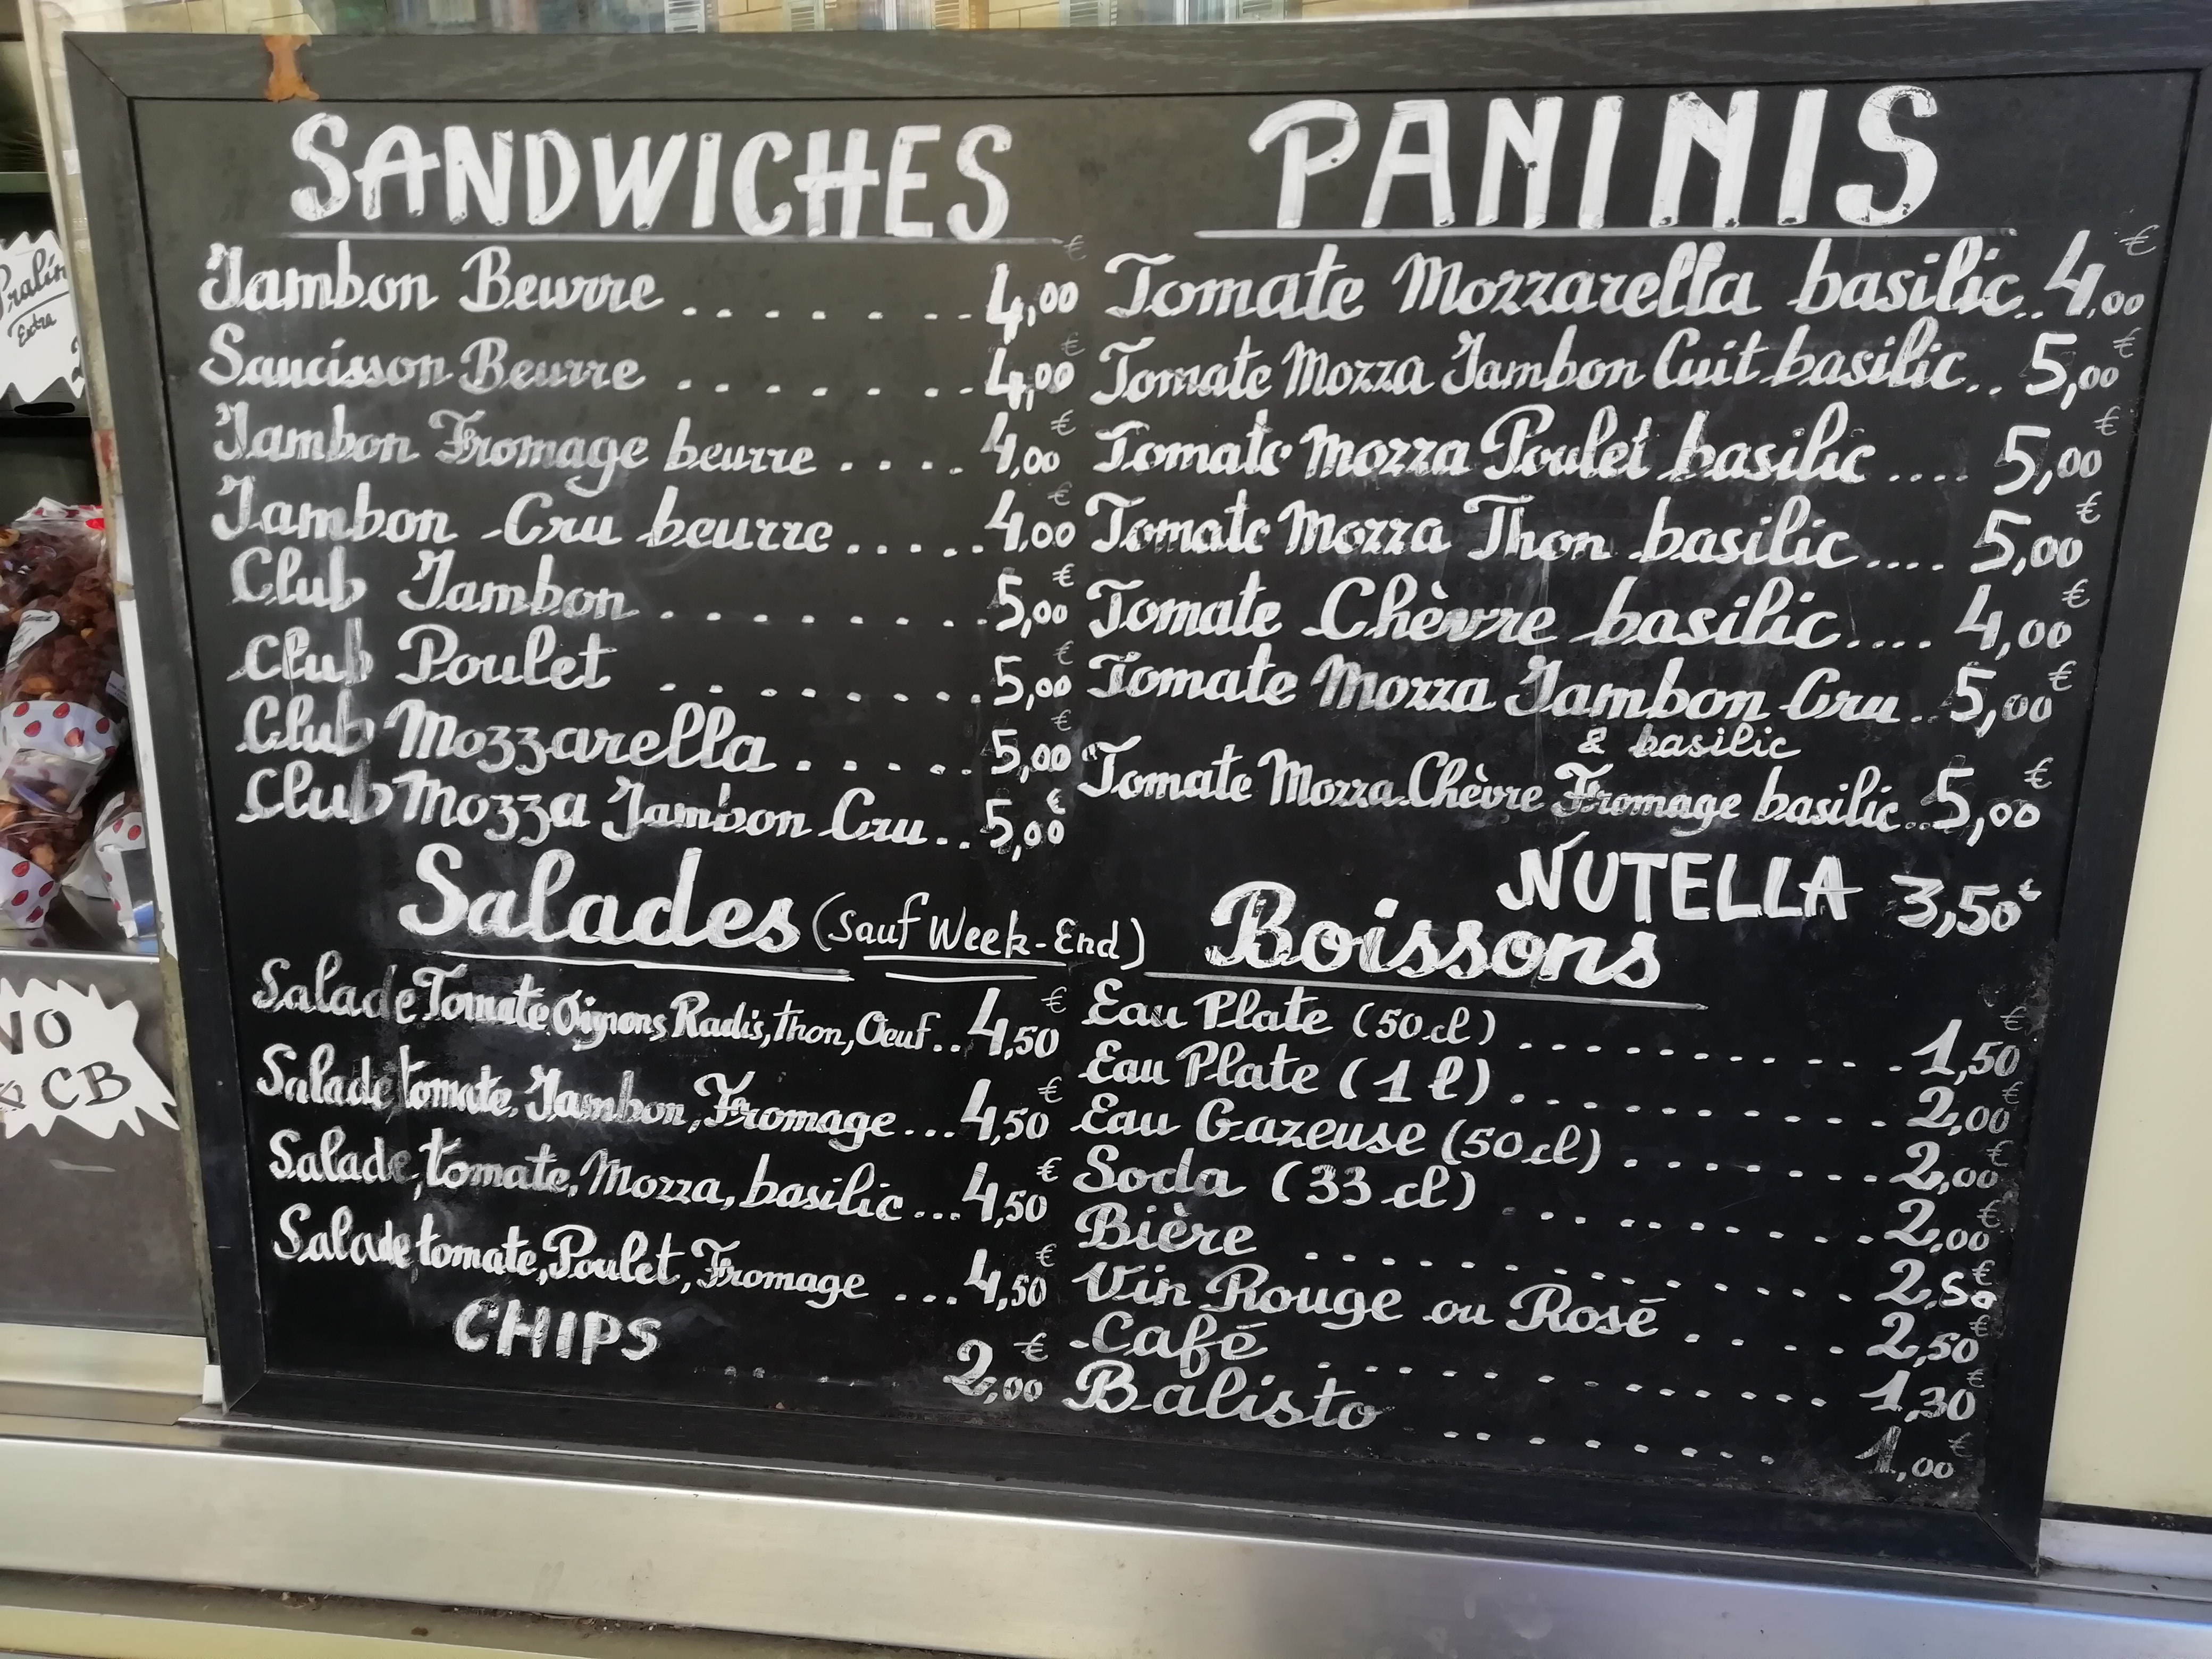 SANDWICHES
Jambon Beurre ........ 4,00 €
Saucisson Beurre ....... 4,00 €
Jambon Fromage beurre .... 4,00 €
Jambon Cru beurre ..... 4,00 €
Club Jambon ......... 5,00 €
Club Poulet ........ 5,00 €
Club Mozzarella ..... 5,00 €
Club Mozza Jambon Cru .. 5,00 €
Salades (Sauf Week-End)
Salade Tomate, Oignons, Radis, Thon, Oeuf .. 4,50 €
Salade tomate, Jambon, Fromage ... 4,50 €
Salade, tomate, Mozza, basilic ... 4,50 €
Salade tomate, Poulet, Fromage ... 4,50 €
CHIPS ..... 2,00 €
PANINIS
Tomate Mozzarella basilic .. 4,00 €
Tomate Mozza Jambon Cuit basilic .. 5,00 €
Tomate Mozza Poulet basilic .... 5,00 €
Tomate Mozza Thon basilic .... 5,00 €
Tomate Chèvre basilic .... 4,00 €
Tomate Mozza Jambon Cru .. 5,00 €
& basilic
Tomate Mozza Chèvre Fromage basilic .. 5,00 €
NUTELLA 3,50 €
Boissons
Eau Plate (50 cl) .......... 1,50 €
Eau Plate (1 l) .......... 2,00 €
Eau Gazeuse (50 cl) ....... 2,00 €
Soda (33 cl) .......... 2,00 €
Bière ............. 2,50 €
Vin Rouge ou Rosé .... 2,50 €
Café ............ 1,30 €
Balisto ........ 1,00 €
Extra
CB